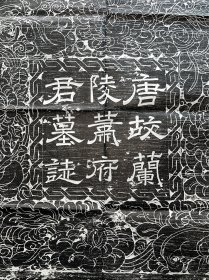 唐故蘭
陵蕭府
君墓誌